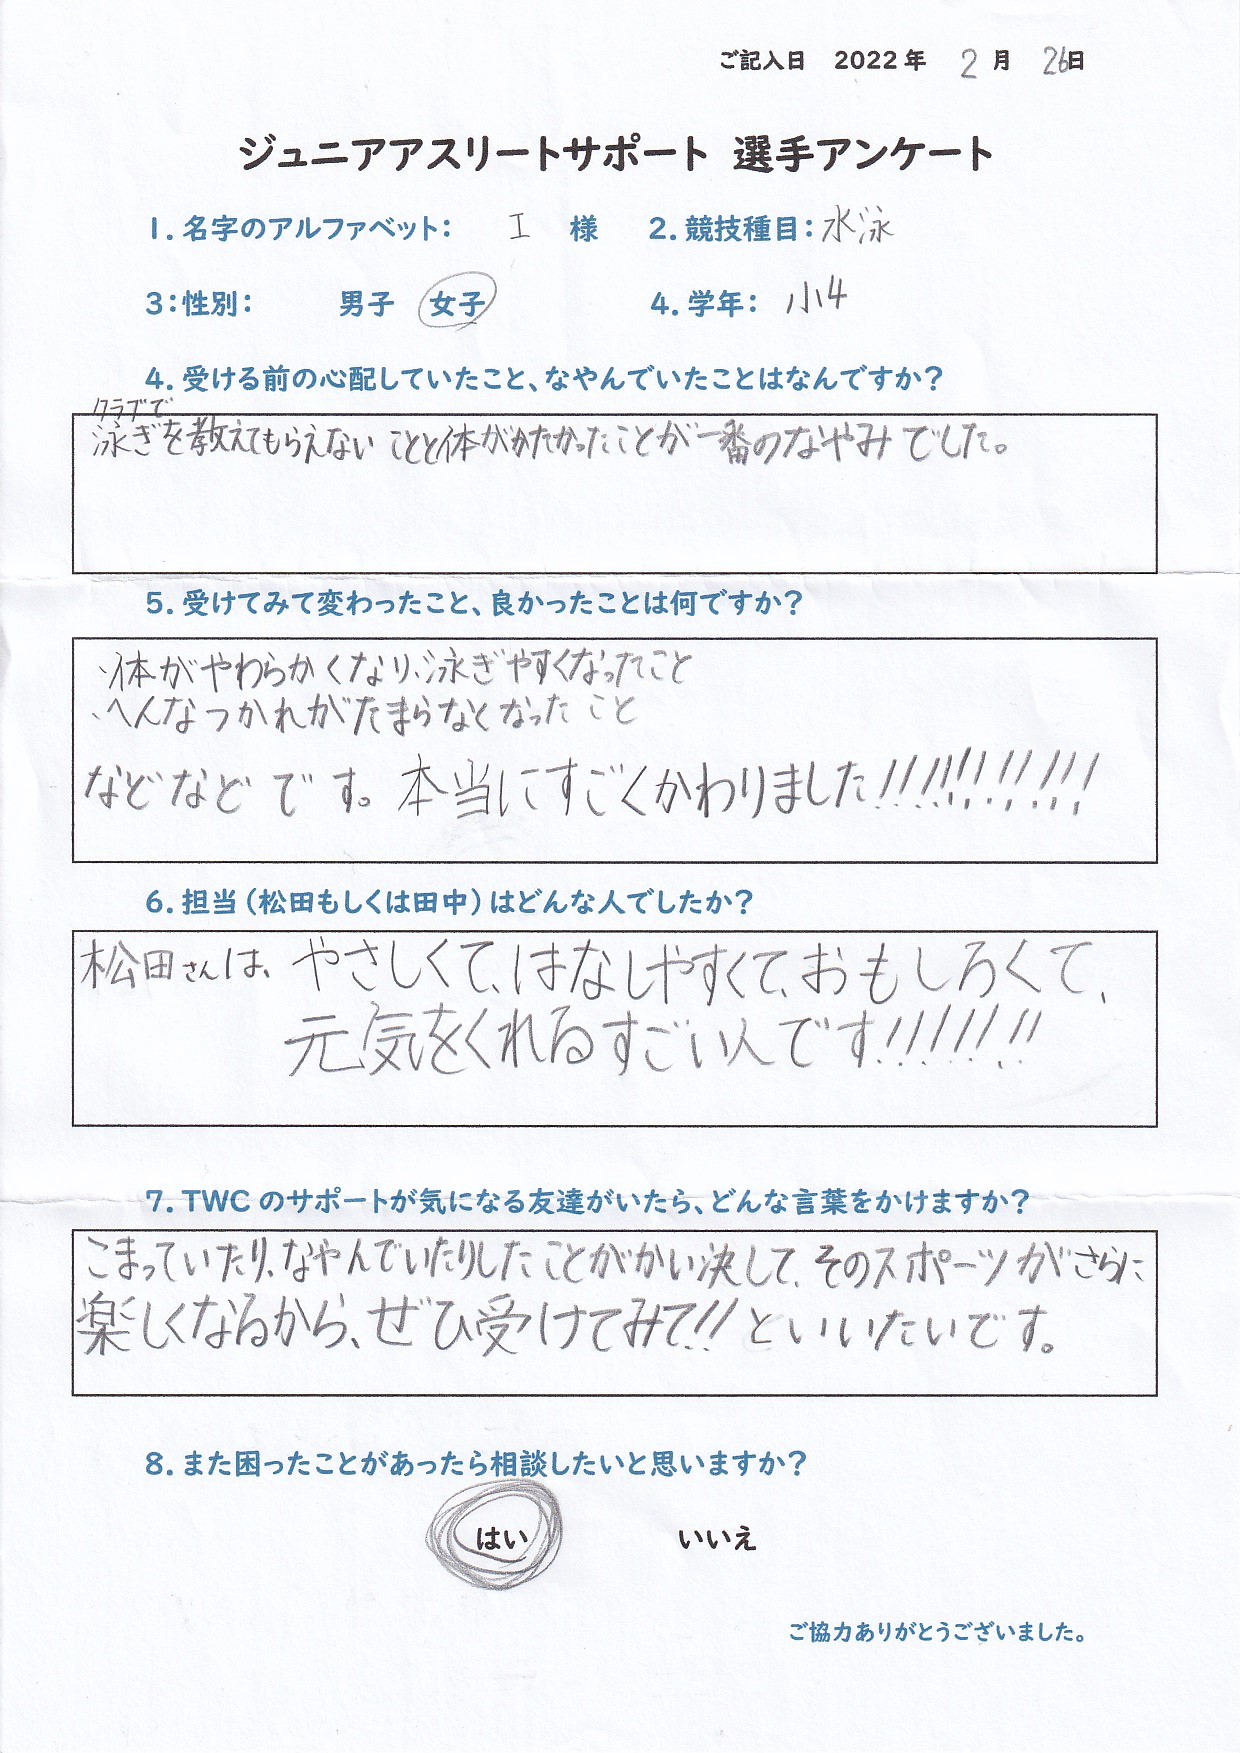 ご記入日 2022年 2月 26日
ジュニアアスリートサポート 選手アンケート
1.名字のアルファベット： I 様 2.競技種目：水泳
3：性別： 男子 女子 4.学年： 小4
4.受ける前の心配していたこと、なやんでいたことはなんですか？
クラブで
泳ぎを教えてもらえないことと体がかたかったことが一番のなやみでした。
5.受けてみて変わったこと、良かったことは何ですか？
・体がやわらかくなり、泳ぎやすくなったこと
・へんなつかれがたまらなくなったこと
などなどです。本当にすごくかわりました!!!!!!!!!!!
6.担当（松田もしくは田中）はどんな人でしたか？
松田さんは、やさしくて、はなしやすくて、おもしろくて、
元気をくれるすごい人です!!!!!!!!
7.TWCのサポートが気になる友達がいたら、どんな言葉をかけますか？
こまっていたり、なやんでいたりしたことがかい決して、そのスポーツがさらに
楽しくなるから、ぜひ受けてみて!!といいたいです。
8.また困ったことがあったら相談したいと思いますか？
はい いいえ
ご協力ありがとうございました。